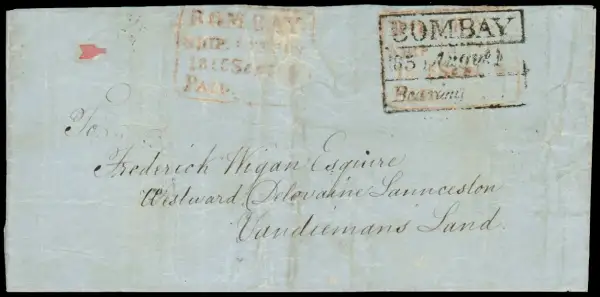 BOMBAY
PAID
BOMBAY
Bearing
To
Frederich Wigan Esquire
Westward Delovaine Launceston
Vandiemans Land.